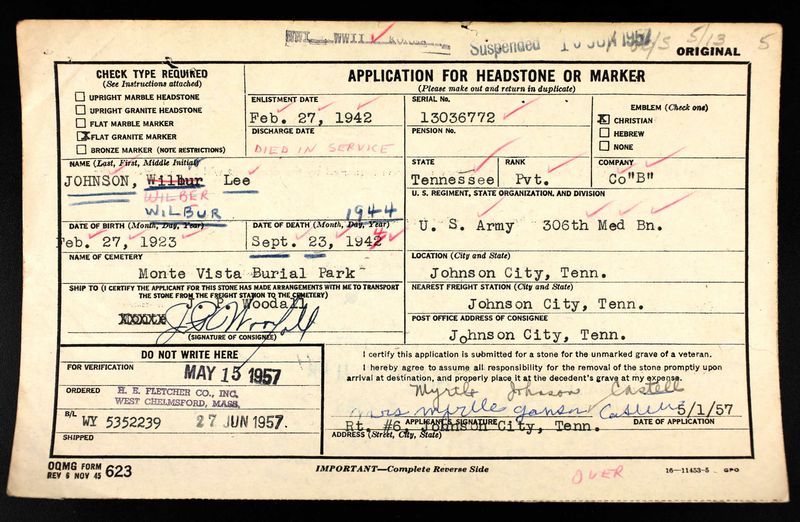 WWI WWII ✓ KOREA
Suspended 10 JUN 1957 5/13 5
ORIGINAL
CHECK TYPE REQUIRED
(See Instructions attached)
UPRIGHT MARBLE HEADSTONE
UPRIGHT GRANITE HEADSTONE
FLAT MARBLE MARKER
X FLAT GRANITE MARKER
BRONZE MARKER (NOTE RESTRICTIONS)
APPLICATION FOR HEADSTONE OR MARKER
(Please make out and return in duplicate)
ENLISTMENT DATE
Feb. 27, 1942
DISCHARGE DATE
DIED IN SERVICE
SERIAL No.
13036772
PENSION No.
EMBLEM (Check one)
X CHRISTIAN
HEBREW
NONE
NAME (Last, First, Middle Initial)
JOHNSON, Wilbur Lee
WILBER
WILBUR
STATE
Tennessee
RANK
Pvt.
COMPANY
Co"B"
U. S. REGIMENT, STATE ORGANIZATION, AND DIVISION
U. S. Army 306th Med Bn.
DATE OF BIRTH (Month, Day, Year)
Feb. 27, 1923
DATE OF DEATH (Month, Day, Year)
1944
Sept. 23, 1942
NAME OF CEMETERY
Monte Vista Burial Park
LOCATION (City and State)
Johnson City, Tenn.
SHIP TO (I CERTIFY THE APPLICANT FOR THIS STONE HAS MADE ARRANGEMENTS WITH ME TO TRANSPORT
THE STONE FROM THE FREIGHT STATION TO THE CEMETERY)
J. P. Woodall
J. P. Woodall
(SIGNATURE OF CONSIGNEE)
NEAREST FREIGHT STATION (City and State)
Johnson City, Tenn.
POST OFFICE ADDRESS OF CONSIGNEE
Johnson City, Tenn.
DO NOT WRITE HERE
FOR VERIFICATION
MAY 15 1957
ORDERED
H. E. FLETCHER CO., INC.
WEST CHELMSFORD, MASS.
B/L
WY 5352239
27 JUN 1957.
SHIPPED
I certify this application is submitted for a stone for the unmarked grave of a veteran.
I hereby agree to assume all responsibility for the removal of the stone promptly upon
arrival at destination, and properly place it at the decedent's grave at my expense.
Myrtle Johnson Castell
Mrs Myrtle Castell
5/1/57
APPLICANT'S SIGNATURE
DATE OF APPLICATION
Rt. #6, Johnson City, Tenn.
ADDRESS (Street, City, State)
OQMG FORM
REV 6 NOV 45 623
IMPORTANT—Complete Reverse Side
OVER
16—11453-5 GPO